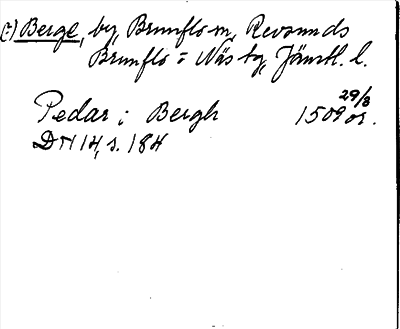 (?) Berge, by, Brunflo sn, Revsunds
Brunflo o Näs tg, Jämtl. l.
29/8
Pedar i Bergh 1509 or.
DN 14, s. 184